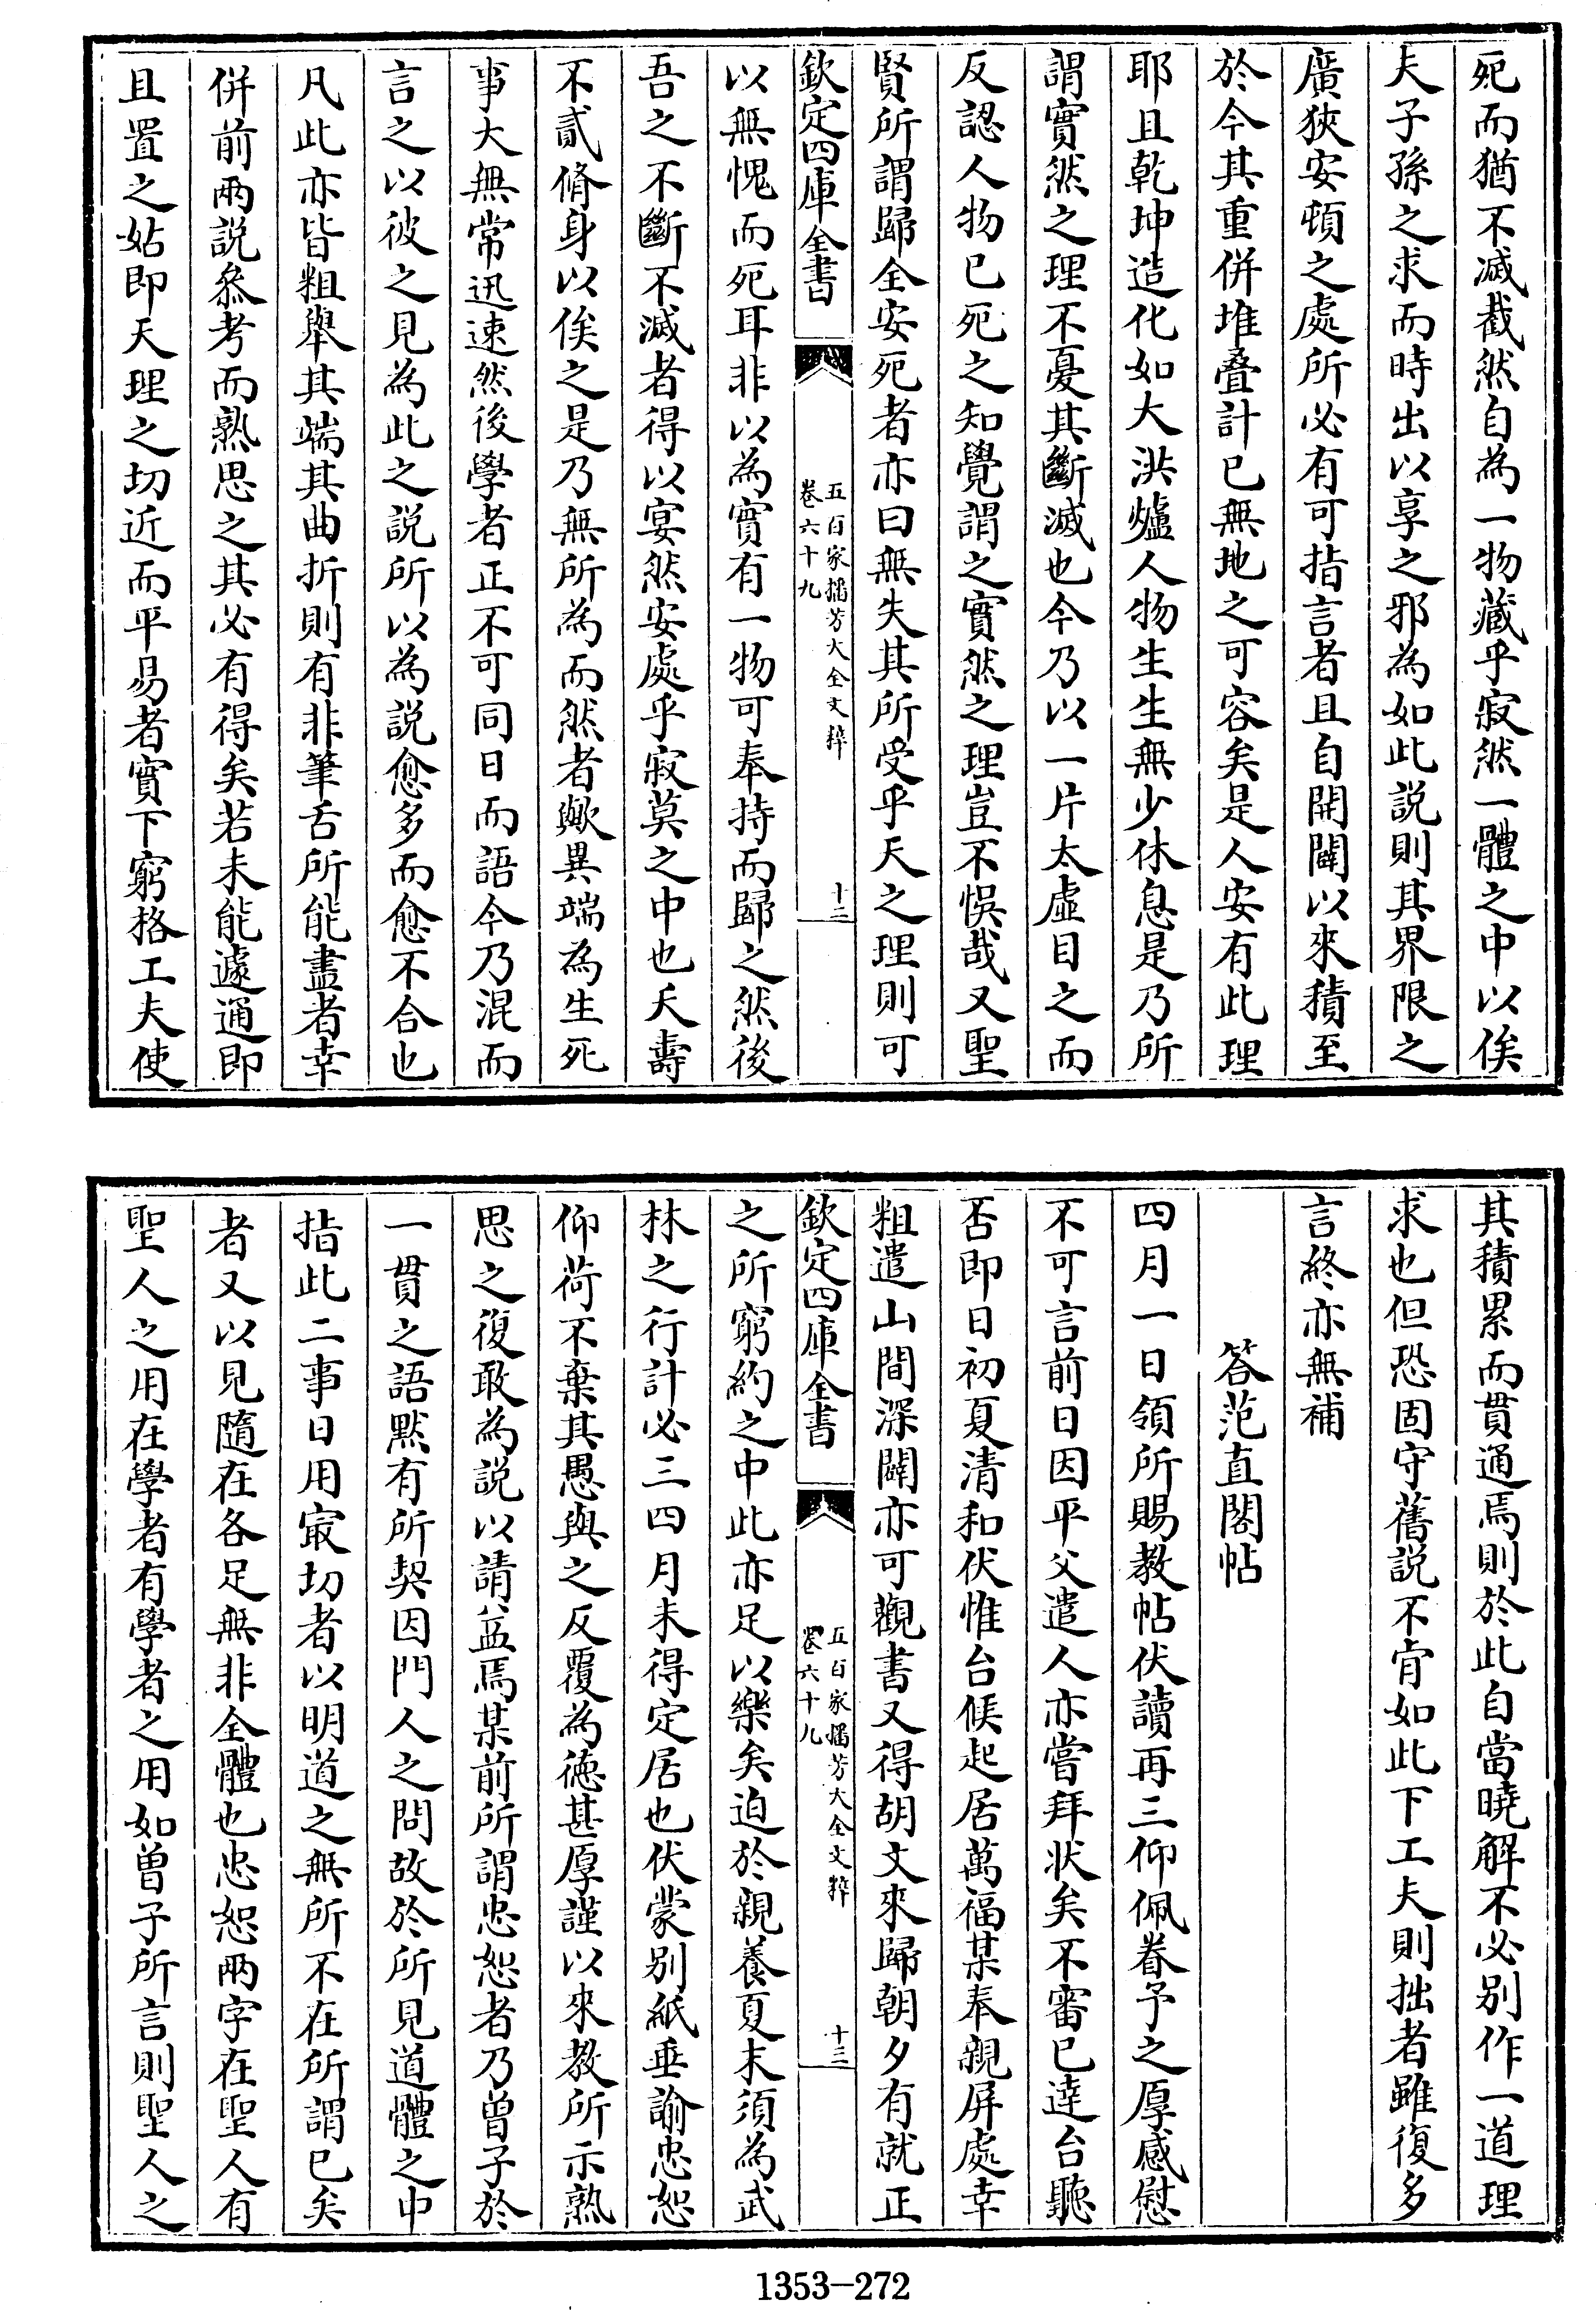 死而猶不滅截然自為一物藏乎寂然一體之中以俟
夫子孫之求而時出以享之邪為如此説則其界限之
廣狹安頓之處所必有可指言者且自開闢以來積至
於今其重併堆疊計已無地之可容矣是人安有此理
耶且乾坤造化如大洪爐人物生生無少休息是乃所
謂實然之理不憂其斷滅也今乃以一片太虛目之而
反認人物已死之知覺謂之實然之理豈不悞哉又聖
賢所謂歸全安死者亦曰無失其所受乎天之理則可
欽定四庫全書
五百家播芳大全文粹
卷六十九
十二
以無愧而死耳非以為實有一物可奉持而歸之然後
吾之不斷不滅者得以宴然安處乎寂莫之中也夭壽
不貳脩身以俟之是乃無所為而然者歟異端為生死
事大無常迅速然後學者正不可同日而語今乃混而
言之以彼之見為此之説所以為説愈多而愈不合也
凡此亦皆粗舉其端其曲折則有非筆舌所能盡者幸
併前兩説叅考而熟思之其必有得矣若未能遽通即
且置之姑即天理之切近而平易者實下窮格工夫使
其積累而貫通焉則於此自當曉解不必别作一道理
求也但恐固守舊説不肯如此下工夫則拙者雖復多
言終亦無補
答范直閣帖
四月一日領所賜教帖伏讀再三仰佩眷予之厚感慰
不可言前日因平父遣人亦嘗拜状矣不審已逹台聽
否即日初夏清和伏惟台候起居萬福某奉親屏處幸
粗遣山間深闃亦可觀書又得胡文來歸朝夕有就正
欽定四庫全書
五百家播芳大全文粹
卷六十九
十三
之所窮約之中此亦足以樂矣迫於親養夏末須為武
林之行計必三四月未得定居也伏蒙别紙垂諭忠恕
仰荷不棄其愚與之反覆為徳甚厚謹以來教所示熟
思之復敢為説以請益焉某前所謂忠恕者乃曽子於
一貫之語黙有所契因門人之問故於所見道體之中
指此二事日用㝡切者以明道之無所不在所謂已矣
者又以見隨在各足無非全體也忠恕兩字在聖人有
聖人之用在學者有學者之用如曽子所言則聖人之
1353—272